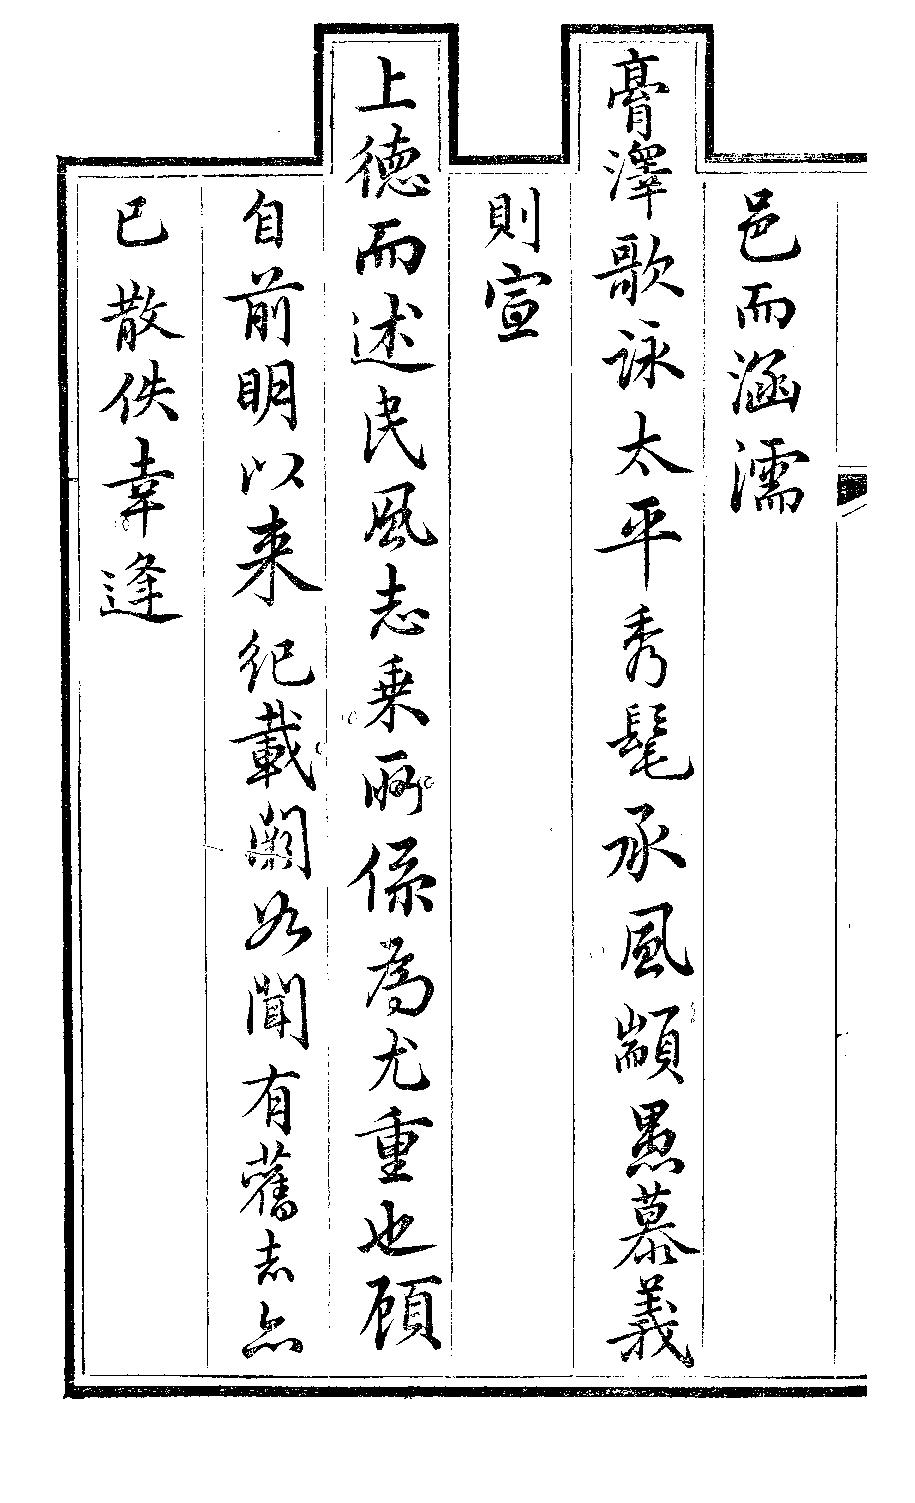 邑而涵濡
膏澤歌詠太平秀髦承風顓愚慕義
則宣
上德而述民風志乘所係為尤重也顧
自前明以来紀載闕如聞有舊志亦
已散佚幸逢